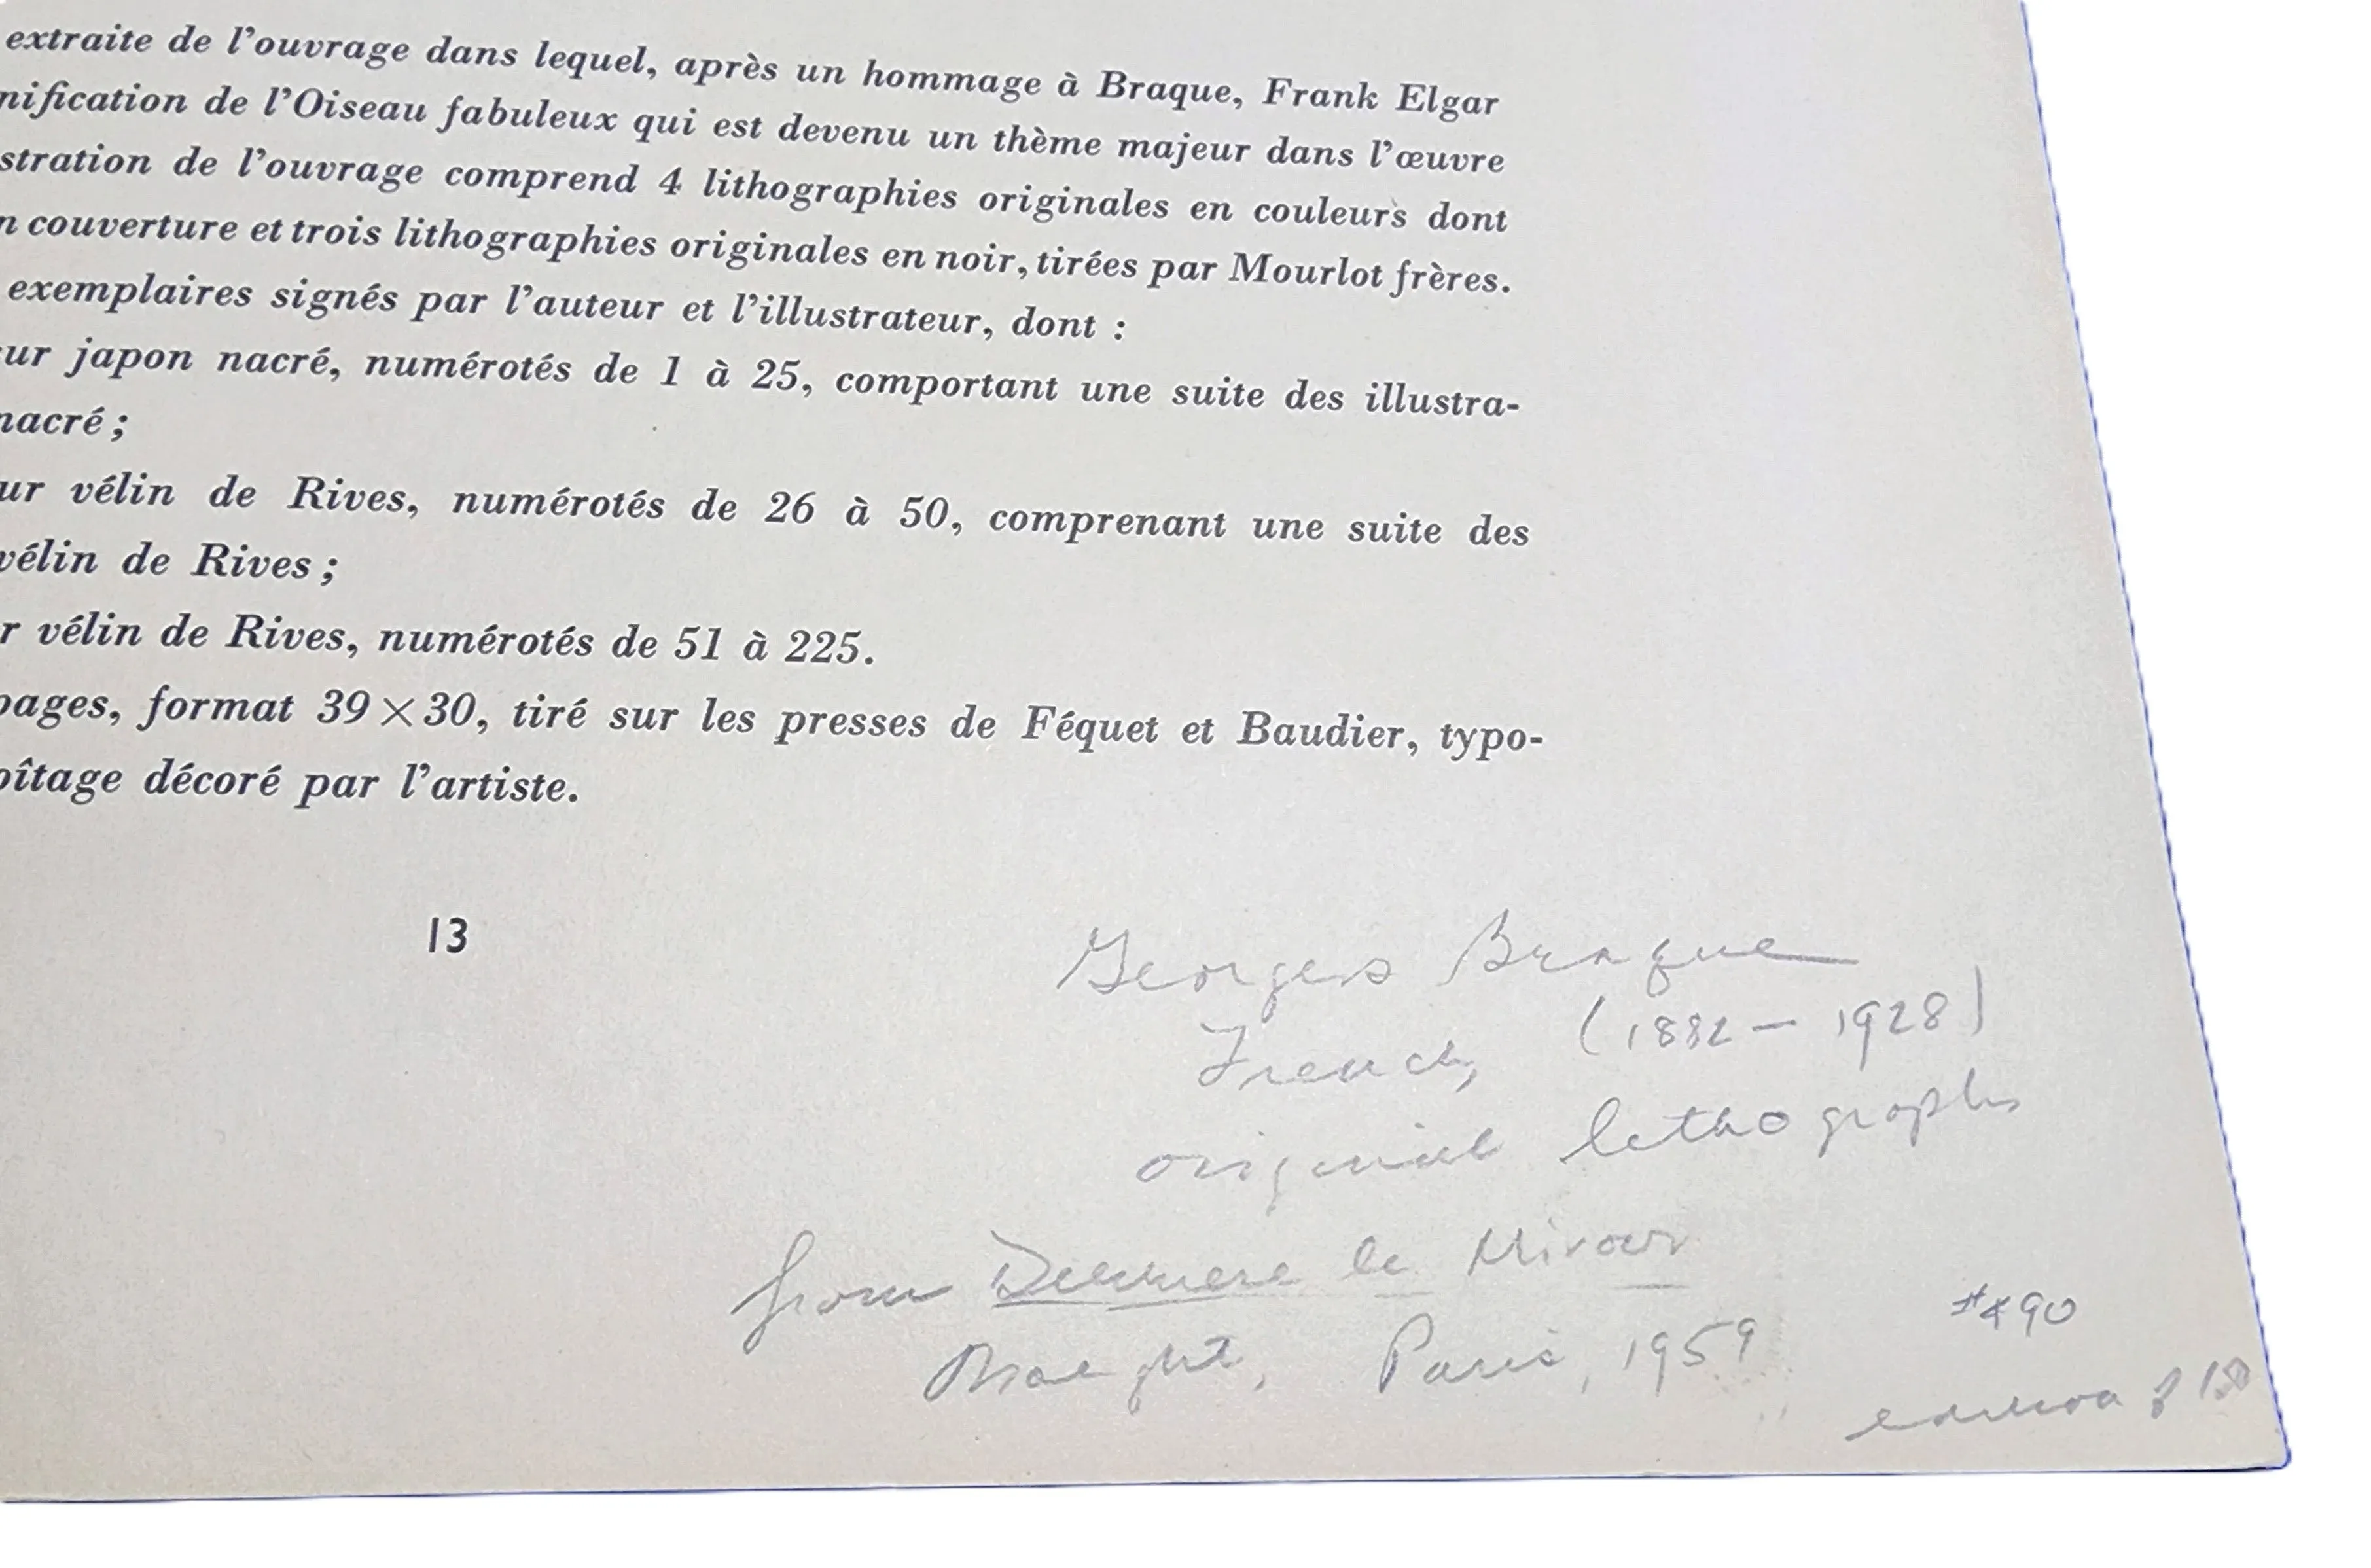 extraite de l'ouvrage dans lequel, après un hommage à Braque, Frank Elgar
nification de l'Oiseau fabuleux qui est devenu un thème majeur dans l'œuvre
stration de l'ouvrage comprend 4 lithographies originales en couleurs dont
n couverture et trois lithographies originales en noir, tirées par Mourlot frères.
exemplaires signés par l'auteur et l'illustrateur, dont :
ur japon nacré, numérotés de 1 à 25, comportant une suite des illustra-
nacré ;
ur vélin de Rives, numérotés de 26 à 50, comprenant une suite des
vélin de Rives ;
r vélin de Rives, numérotés de 51 à 225.
pages, format 39 × 30, tiré sur les presses de Féquet et Baudier, typo-
oîtage décoré par l'artiste.
13
Georges Braque
French, (1882 – 1928)
original lithographs
from Derriere le Miroir
Maeght, Paris, 1959
edition of